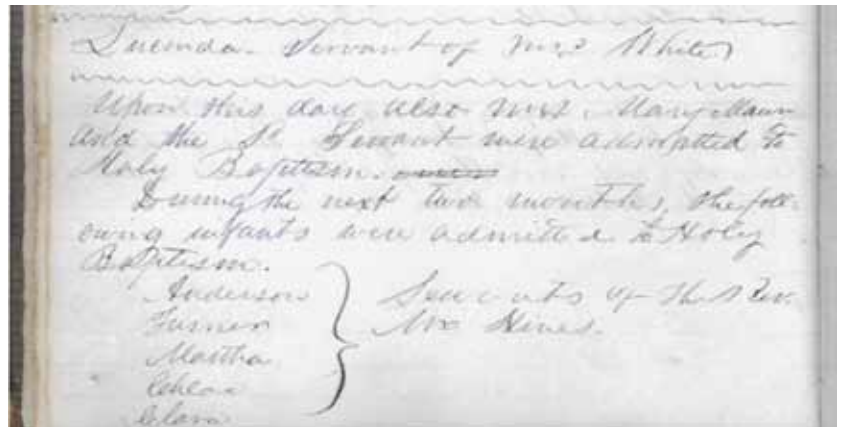 Lucinda. Servant of Mrs White
Upon this day also Mrs. Mary Mann
and the Servant were admitted to
Holy Baptism.
During the next two months, the foll-
owing infants were admitted to Holy
Baptism.
Anderson
Turner
Martha
Chloe
Clara
Servants of The Rev.
Mr Hines.